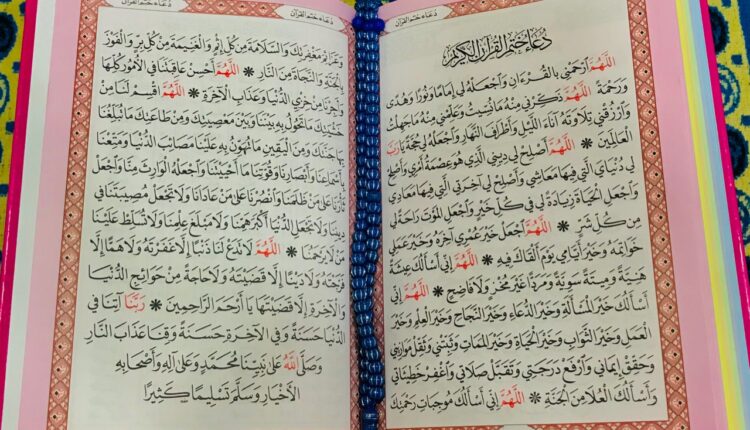 دُعَاءُ خَتْمِ القُرْآنِ
دُعَاءُ خَتْمِ القُرْآنِ الكَرِيمِ
اللَّهُمَّ ارْحَمْنِي بِالقُرْءَانِ وَاجْعَلْهُ لِي إِمَامًا وَنُورًا وَهُدًى
وَرَحْمَةً اللَّهُمَّ ذَكِّرْنِي مِنْهُ مَا نَسِيتُ وَعَلِّمْنِي مِنْهُ مَا جَهِلْتُ
وَارْزُقْنِي تِلَاوَتَهُ آنَاءَ اللَّيْلِ وَأَطْرَافَ النَّهَارِ وَاجْعَلْهُ لِي حُجَّةً يَا رَبَّ
العَالَمِينَ * اللَّهُمَّ أَصْلِحْ لِي دِينِي الَّذِي هُوَ عِصْمَةُ أَمْرِي وَأَصْلِحْ
لِي دُنْيَايَ الَّتِي فِيهَا مَعَاشِي وَأَصْلِحْ لِي آخِرَتِي الَّتِي فِيهَا مَعَادِي
وَاجْعَلِ الحَيَاةَ زِيَادَةً لِي فِي كُلِّ خَيْرٍ وَاجْعَلِ المَوْتَ رَاحَةً لِي
مِنْ كُلِّ شَرٍّ * اللَّهُمَّ اجْعَلْ خَيْرَ عُمْرِي آخِرَهُ وَخَيْرَ عَمَلِي
خَوَاتِمَهُ وَخَيْرَ أَيَّامِي يَوْمَ أَلْقَاكَ فِيهِ * اللَّهُمَّ إِنِّي أَسْأَلُكَ عِيشَةً
هَنِيَّةً وَمِيتَةً سَوِيَّةً وَمَرَدًّا غَيْرَ مُخْزٍ وَلَا فَاضِحٍ * اللَّهُمَّ إِنِّي
أَسْأَلُكَ خَيْرَ المَسْأَلَةِ وَخَيْرَ الدُّعَاءِ وَخَيْرَ النَّجَاحِ وَخَيْرَ العِلْمِ وَخَيْرَ
العَمَلِ وَخَيْرَ الثَّوَابِ وَخَيْرَ الحَيَاةِ وَخَيْرَ المَمَاتِ وَثَبِّتْنِي وَثَقِّلْ مَوَازِينِي
وَحَقِّقْ إِيمَانِي وَارْفَعْ دَرَجَتِي وَتَقَبَّلْ صَلَاتِي وَاغْفِرْ خَطِيئَاتِي
وَأَسْأَلُكَ العُلَا مِنَ الجَنَّةِ * اللَّهُمَّ إِنِّي أَسْأَلُكَ مُوجِبَاتِ رَحْمَتِكَ
دُعَاءُ خَتْمِ القُرْآنِ
وَعَزَائِمَ مَغْفِرَتِكَ وَالسَّلَامَةَ مِنْ كُلِّ إِثْمٍ وَالغَنِيمَةَ مِنْ كُلِّ بِرٍّ وَالفَوْزَ
بِالجَنَّةِ وَالنَّجَاةَ مِنَ النَّارِ * اللَّهُمَّ أَحْسِنْ عَاقِبَتَنَا فِي الأُمُورِ كُلِّهَا
وَأَجِرْنَا مِنْ خِزْيِ الدُّنْيَا وَعَذَابِ الآخِرَةِ * اللَّهُمَّ اقْسِمْ لَنَا مِنْ
خَشْيَتِكَ مَا تَحُولُ بِهِ بَيْنَنَا وَبَيْنَ مَعْصِيَتِكَ وَمِنْ طَاعَتِكَ مَا تُبَلِّغُنَا
بِهَا جَنَّتَكَ وَمِنَ اليَقِينِ مَا تُهَوِّنُ بِهِ عَلَيْنَا مَصَائِبَ الدُّنْيَا وَمَتِّعْنَا
بِأَسْمَاعِنَا وَأَبْصَارِنَا وَقُوَّتِنَا مَا أَحْيَيْتَنَا وَاجْعَلْهُ الوَارِثَ مِنَّا وَاجْعَلْ
ثَأْرَنَا عَلَى مَنْ ظَلَمَنَا وَانْصُرْنَا عَلَى مَنْ عَادَانَا وَلَا تَجْعَلْ مُصِيبَتَنَا فِي
دِينِنَا وَلَا تَجْعَلِ الدُّنْيَا أَكْبَرَ هَمِّنَا وَلَا مَبْلَغَ عِلْمِنَا وَلَا تُسَلِّطْ عَلَيْنَا
مَنْ لَا يَرْحَمُنَا * اللَّهُمَّ لَا تَدَعْ لَنَا ذَنْبًا إِلَّا غَفَرْتَهُ وَلَا هَمًّا إِلَّا
فَرَّجْتَهُ وَلَا دَيْنًا إِلَّا قَضَيْتَهُ وَلَا حَاجَةً مِنْ حَوَائِجِ الدُّنْيَا
وَالآخِرَةِ إِلَّا قَضَيْتَهَا يَا أَرْحَمَ الرَّاحِمِينَ * رَبَّنَا آتِنَا فِي
الدُّنْيَا حَسَنَةً وَفِي الآخِرَةِ حَسَنَةً وَقِنَا عَذَابَ النَّارِ
وَصَلَّى اللَّهُ عَلَى نَبِيِّنَا مُحَمَّدٍ وَعَلَى آلِهِ وَأَصْحَابِهِ
الأَخْيَارِ وَسَلَّمَ تَسْلِيمًا كَثِيرًا